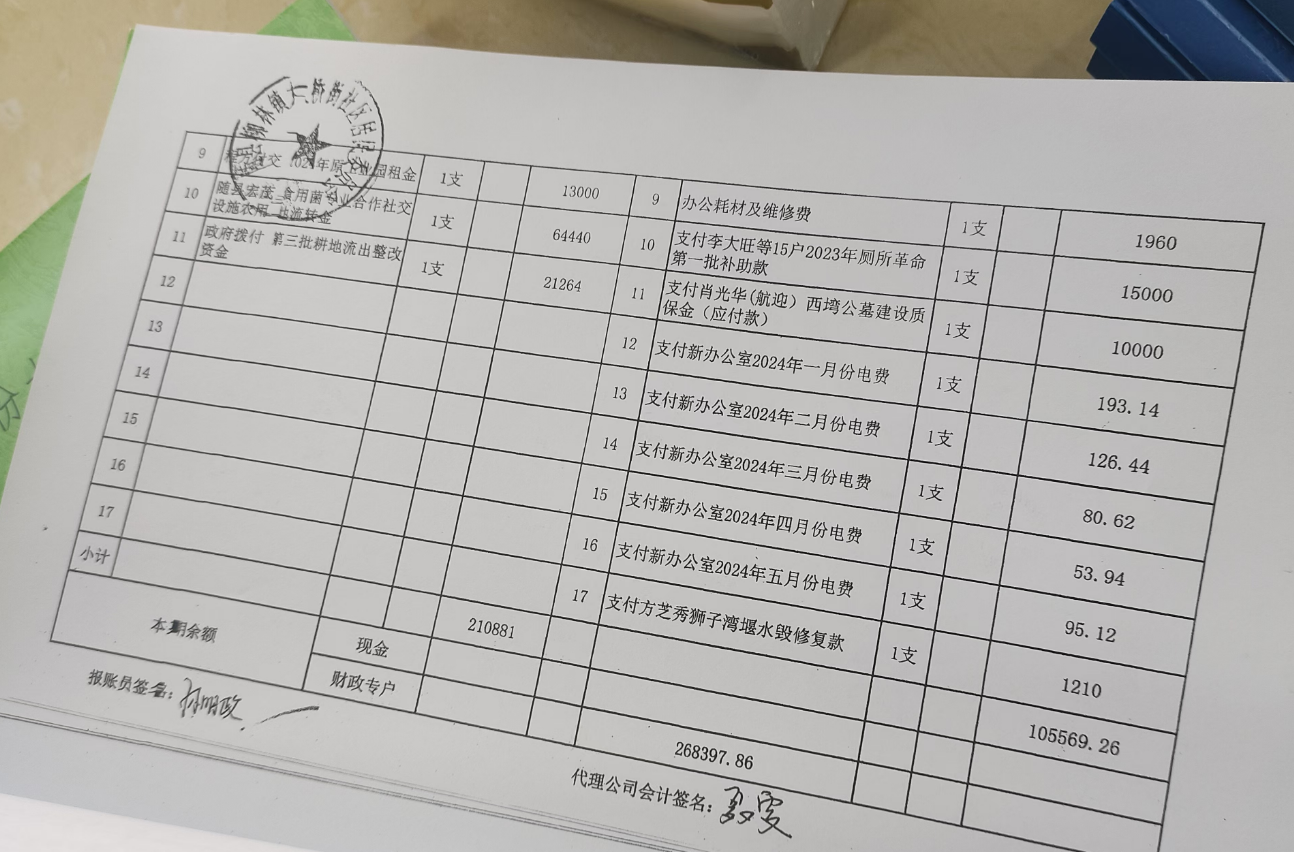 柳林镇大桥街社区居民委员会
9 交 年原 园租金 1支 13000 9 办公耗材及维修费 1支 1960
10 随县宏茂 食用菌 业合作社交
设施农用 地流转金 1支 64440 10 支付李大旺等15户2023年厕所革命
第一批补助款 1支 15000
11 政府拨付 第三批耕地流出整改
资金 1支 21264 11 支付肖光华(航迎）西塆公墓建设质
保金（应付款） 1支 10000
12 12 支付新办公室2024年一月份电费 1支 193.14
13 13 支付新办公室2024年二月份电费 1支 126.44
14 14 支付新办公室2024年三月份电费 1支 80.62
15 15 支付新办公室2024年四月份电费 1支 53.94
16 16 支付新办公室2024年五月份电费 1支 95.12
17 17 支付方芝秀狮子湾堰水毁修复款 1支 1210
小计 210881 105569.26
本期余额 现金
财政专户 268397.86
报账员签名：
代理公司会计签名：
份